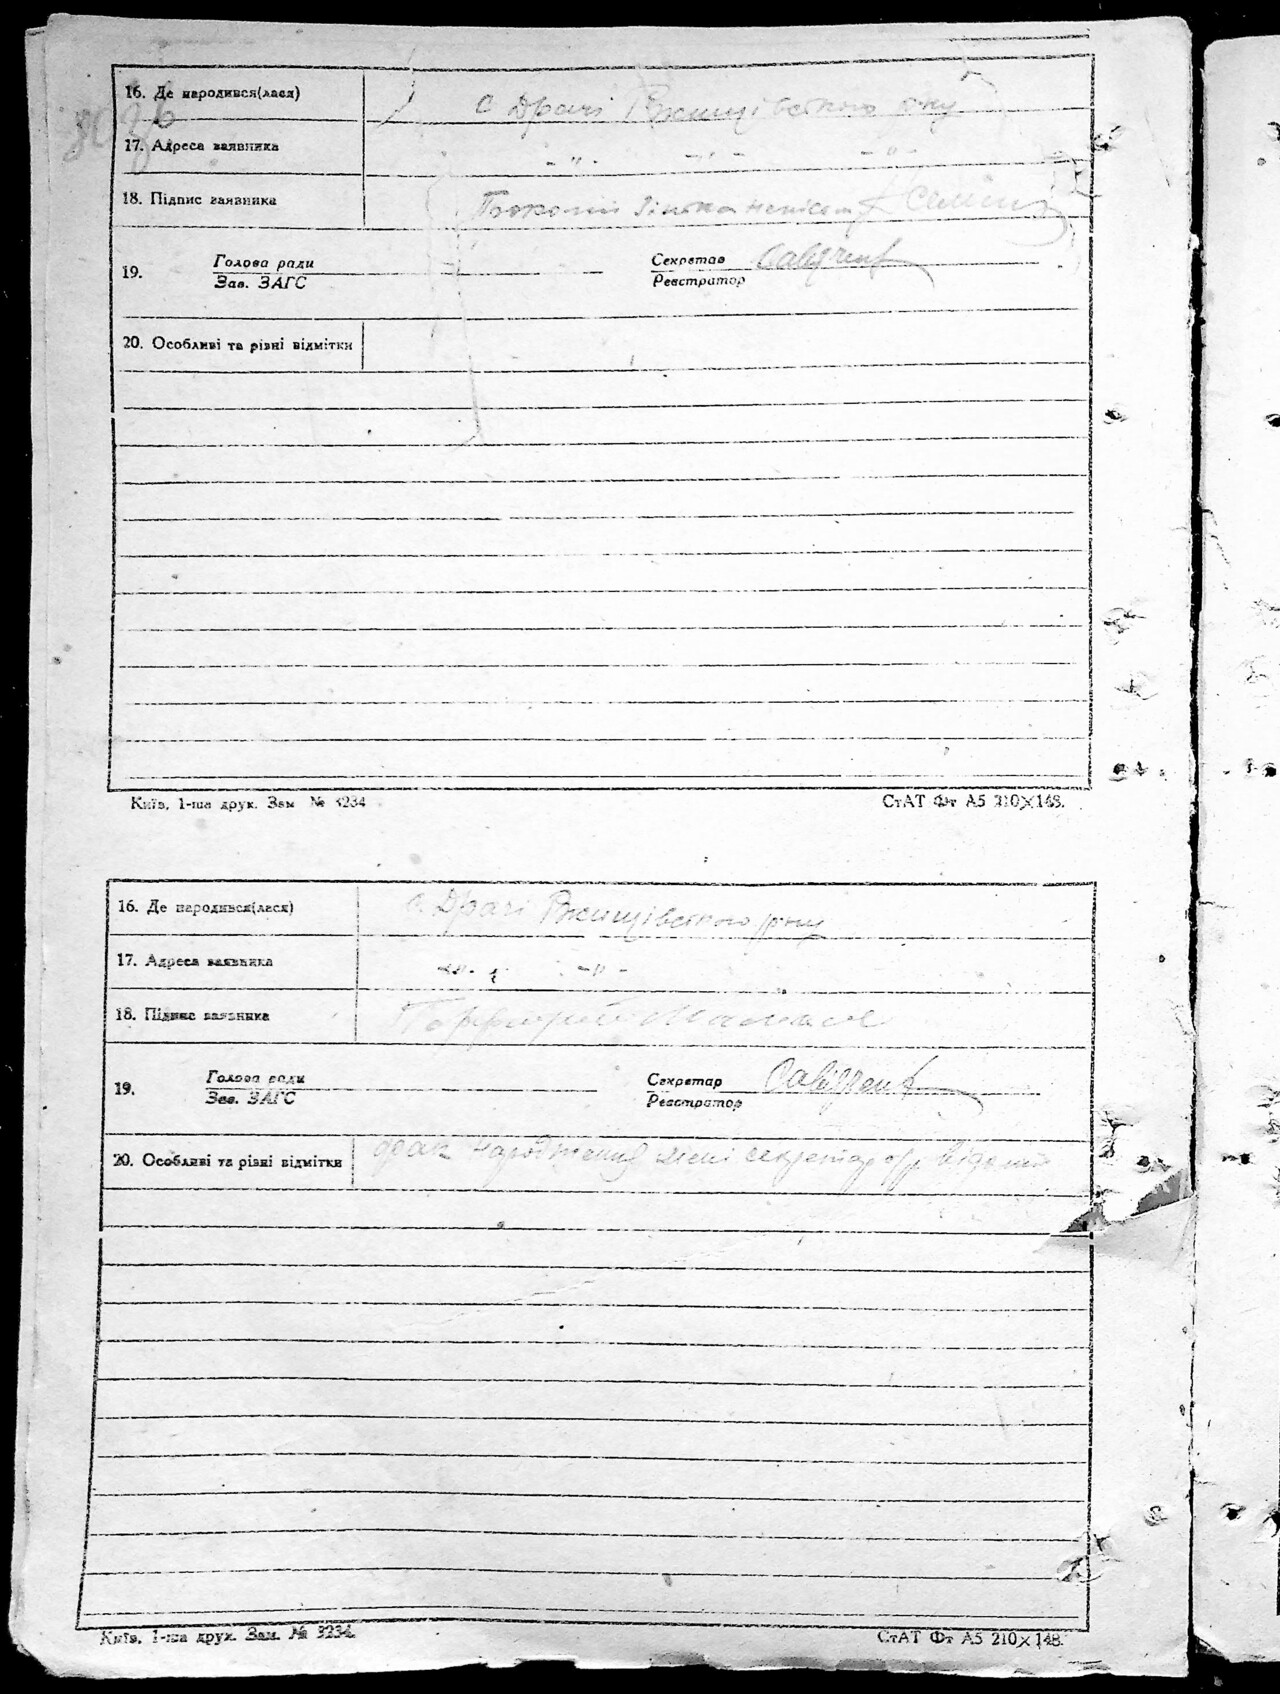 16. Де народився(лася) с Драчі Ржищівського р-ну
17. Адреса заявника -"- -"- -"-
18. Підпис заявника
Голова ради Секретар
19.
Зав. ЗАГС Реєстратор
20. Особливі та різні відмітки
Київ, 1-ша друк. Зам № 3234 СтАТ Фт А5 210×148.
16. Де народився(лася) с. Драчі Ржищівського р-ну
17. Адреса заявника -"- -"-
18. Підпис заявника
Голова ради Секретар
19.
Зав. ЗАГС Реєстратор
20. Особливі та різні відмітки народження мені секретарю відомий
Київ, 1-ша друк. Зам. № 3234. СтАТ Фт А5 210×148.